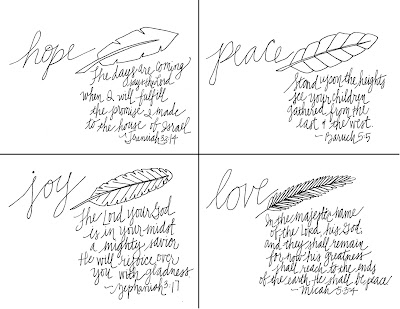 hope
The days are coming
says the Lord
when I will fulfill
the promise I made
to the house of Israel
~Jeremiah 33:14
peace
Stand upon the heights
see your children
gathered from the
east & the west.
~Baruch 5:5
joy
The Lord your God
is in your midst
a mighty savior
He will rejoice over
you with gladness
~Zephaniah 3:17
love
In the majestic name
of the Lord, his God,
and they shall remain
for now his greatness
shall reach to the ends
of the earth. He shall be peace
~Micah 5:3-4